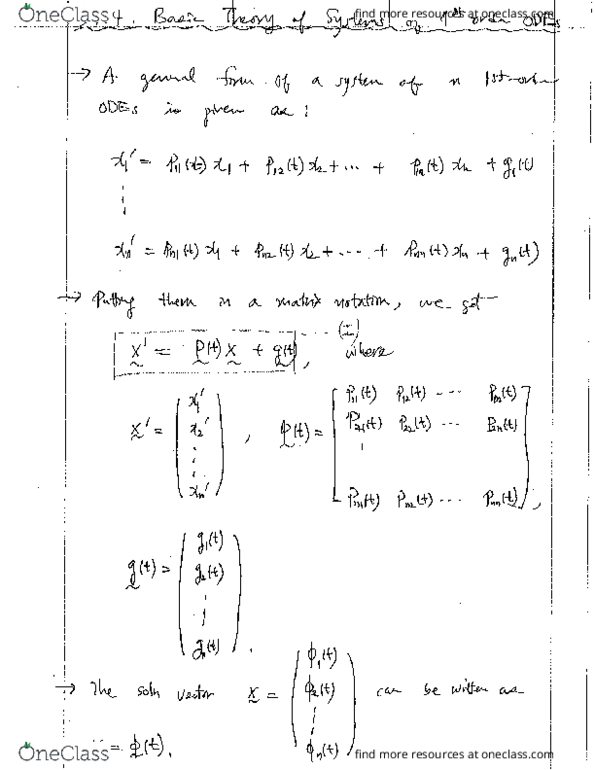 OneClass find more resources at oneclass.com
4. Basic Theory of Systems of 1st order ODEs
→ A general form of a system of n 1st-order
ODEs is given as:
x₁' = P₁₁(t) x₁ + P₁₂(t) x₂ + ··· + P₁ₙ(t) xₙ + g₁(t)
⋮
xₙ' = Pₙ₁(t) x₁ + Pₙ₂(t) x₂ + ··· + Pₙₙ(t) xₙ + gₙ(t)
→ Putting them in a matrix notation, we get
x' = P(t) x + g(t), ··· (I) where
x' = (x₁' x₂' ⋮ xₙ'), P(t) = [P₁₁(t) P₁₂(t) ··· P₁ₙ(t)
P₂₁(t) P₂₂(t) ··· P₂ₙ(t)
⋮
Pₙ₁(t) Pₙ₂(t) ··· Pₙₙ(t)],
g(t) = (g₁(t) g₂(t) ⋮ gₙ(t)).
→ The soln vector x = (ϕ₁(t) ϕ₂(t) ⋮ ϕₙ(t)) can be written as
= ϕ(t).
OneClass find more resources at oneclass.com